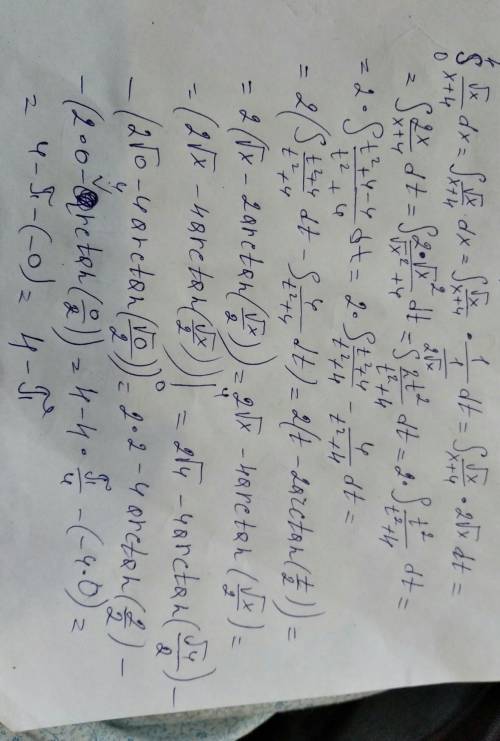 4∫0 √x/(x+4) dx = ∫ √x/(x+4) dx = ∫ √x/(x+4) · 1/(1/(2√x)) dt = ∫ √x/(x+4) · 2√x dt =
= ∫ 2x/(x+4) dt = ∫ 2·√x²/(√x²+4) dt = ∫ 2t²/(t²+4) dt = 2·∫ t²/(t²+4) dt =
= 2·∫ (t²+4-4)/(t²+4) dt = 2·∫ (t²+4)/(t²+4) - 4/(t²+4) dt =
= 2(∫ (t²+4)/(t²+4) dt - ∫ 4/(t²+4) dt) = 2(t - 2arctan(t/2)) =
= 2(√x - 2arctan(√x/2)) = 2√x - 4arctan(√x/2) =
= (2√x - 4arctan(√x/2))|4 0 = 2√4 - 4arctan(√4/2) -
- (2√0 - 4arctan(√0/2)) = 2·2 - 4arctan(2/2) -
- (2·0 - 4arctan(0/2)) = 4 - 4·π/4 - (-4·0) =
= 4 - π - (-0) = 4 - π